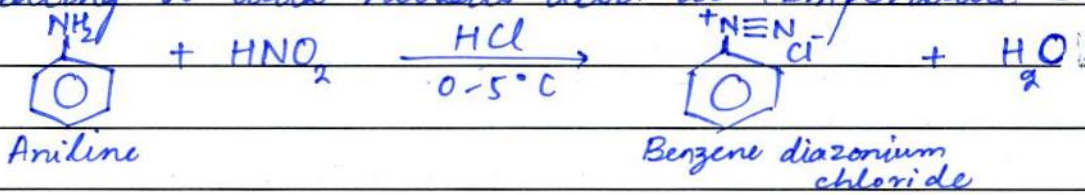 NH2
+ HNO2 HCl 0-5°C +N≡N Cl- + H2O
Aniline Benzene diazonium
chloride